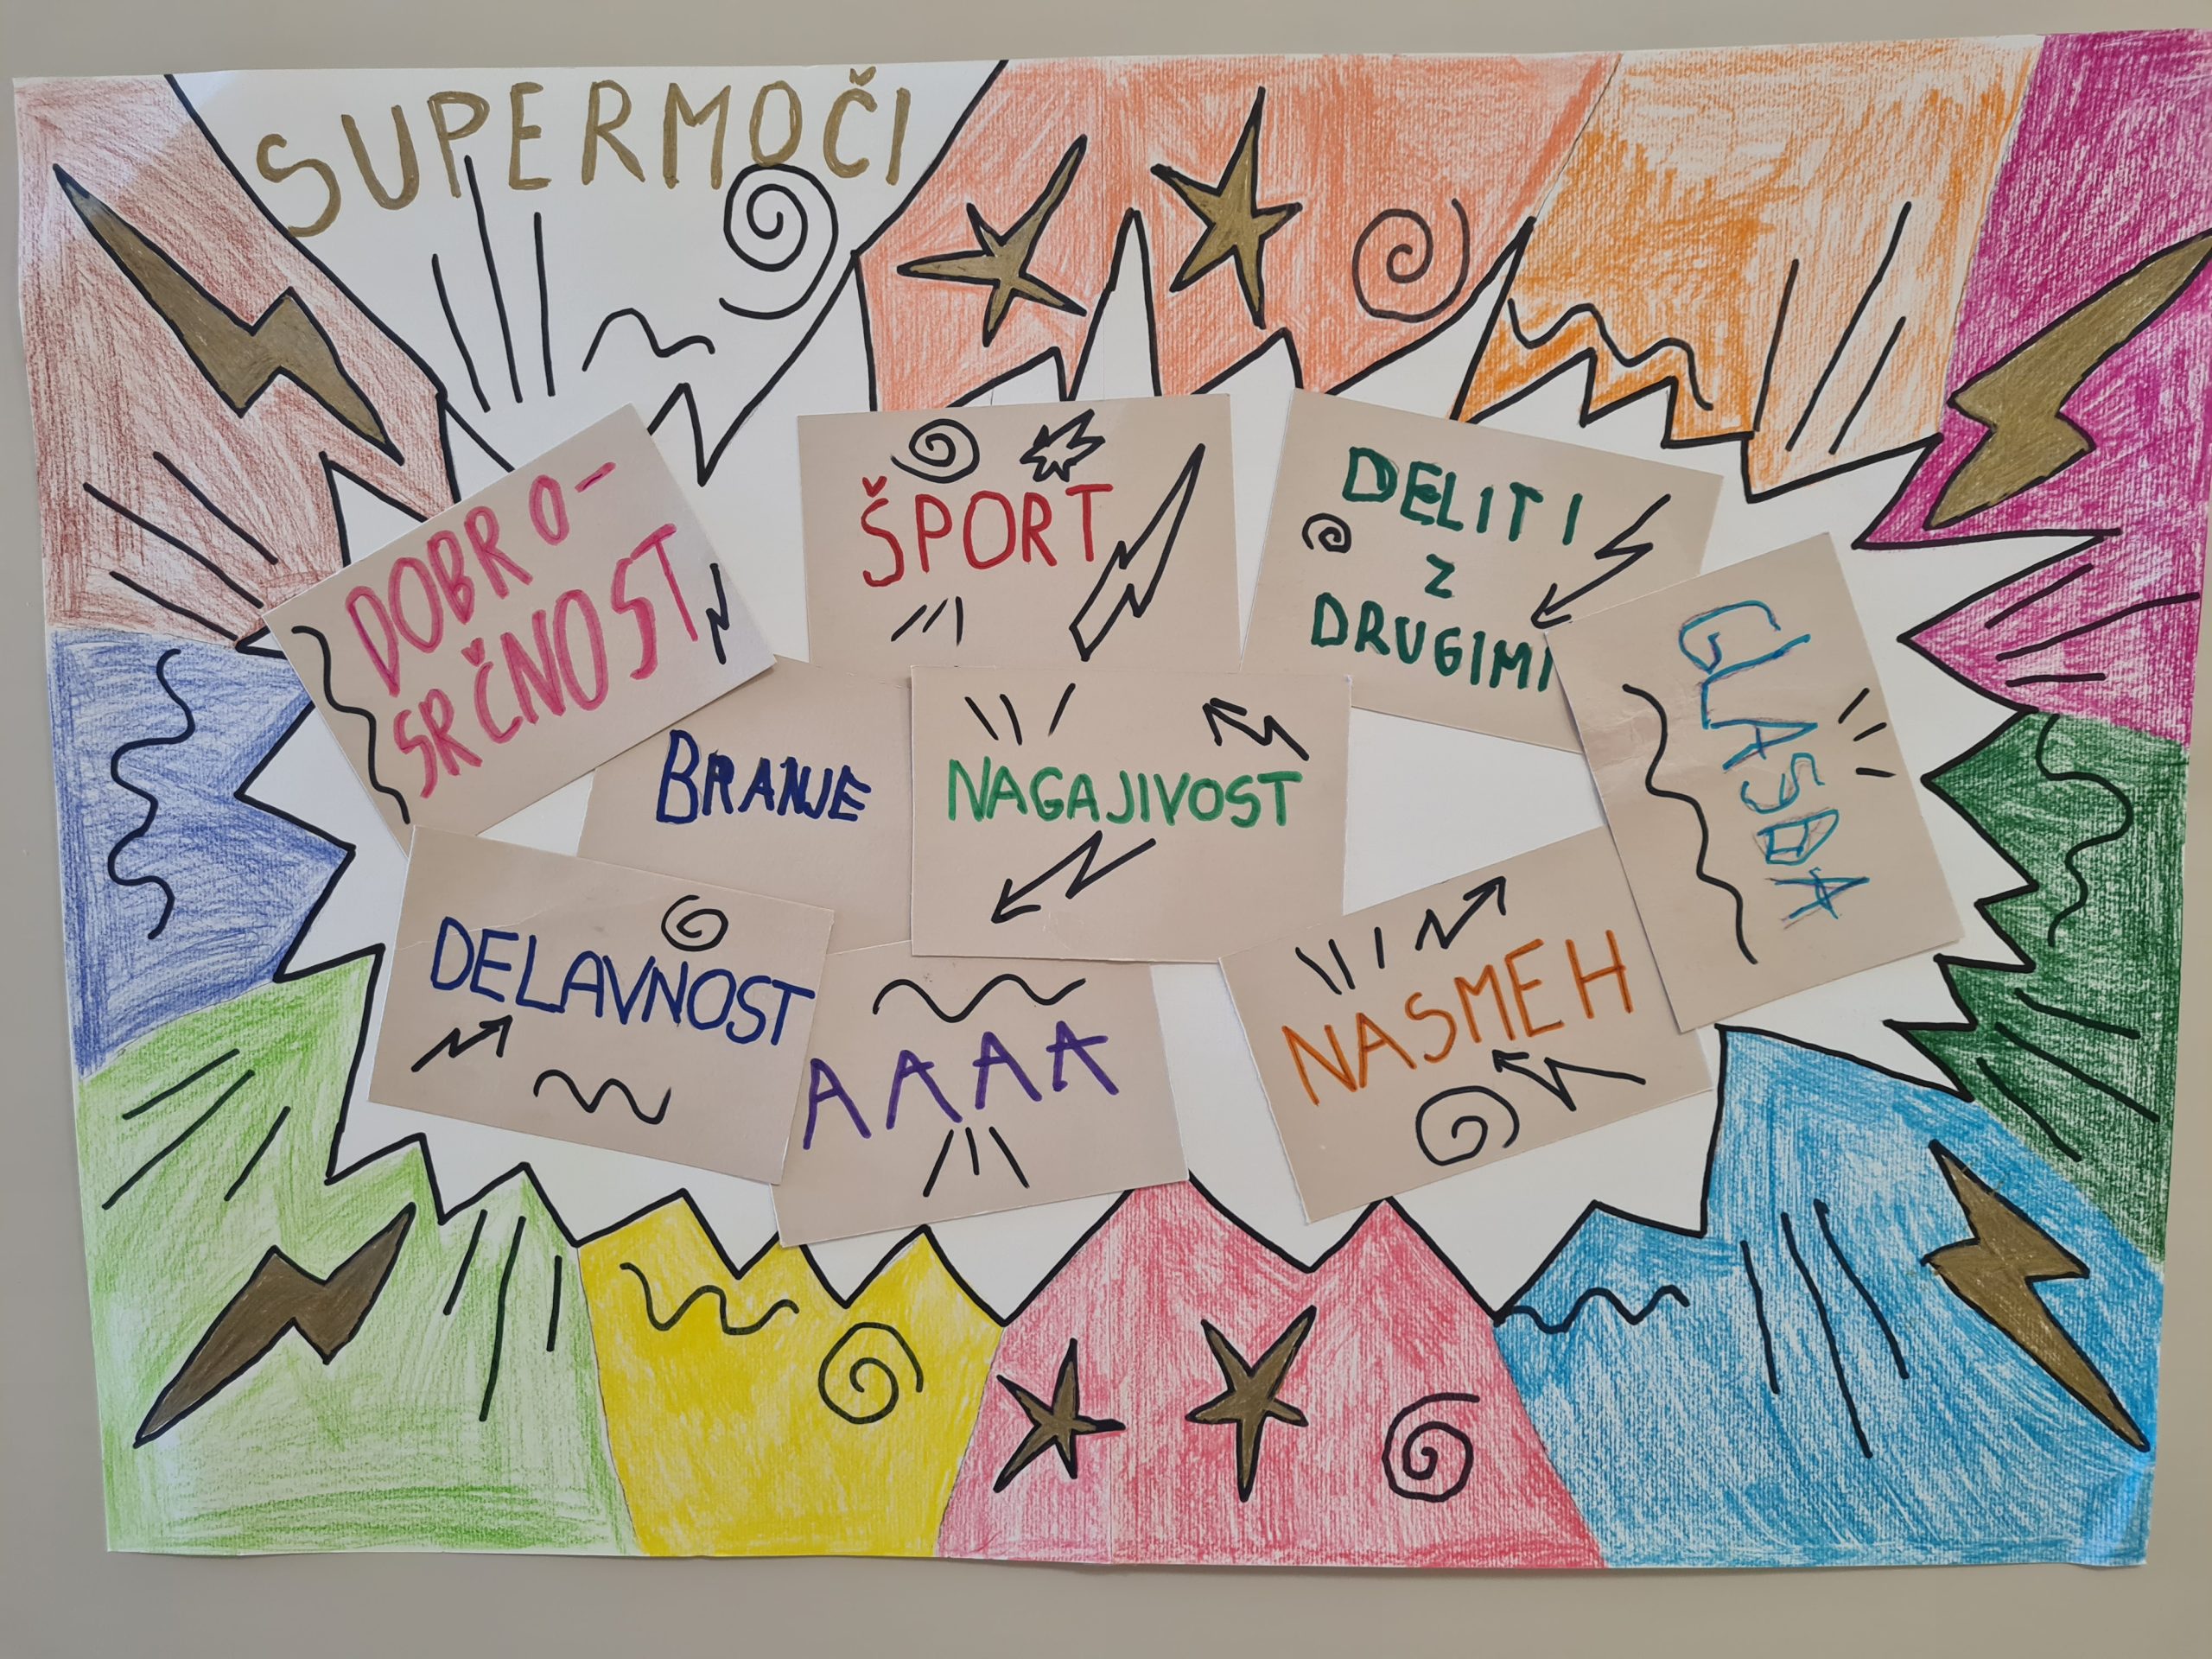 SUPERMOČI
DOBRO-
SRČNOST
ŠPORT
DELITI
Z
DRUGIMI
GLASBA
BRANJE
NAGAJIVOST
DELAVNOST
AAAA
NASMEH